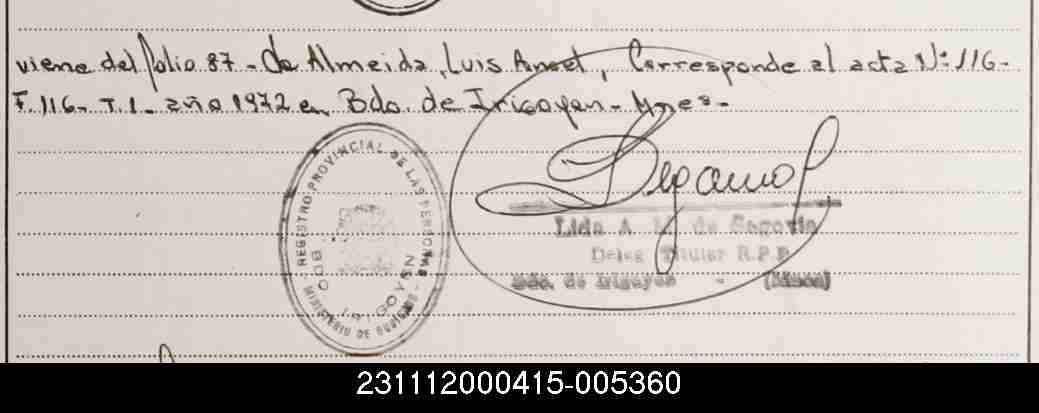 viene del folio 87 - De Almeida, Luis Angel, Corresponde al acta Nº 116 -
F. 116 - T. 1 - año 1972 en Bdo. de Irigoyen - Mnes -
REGISTRO PROVINCIAL DE LAS PERSONAS
BDO IRIGOYEN
MINISTERIO DE GOBIERNO
Lida A. M. de Segovia
Deleg. Titular R.P.P.
Bdo. de Irigoyen - (Mnes)
231112000415-005360